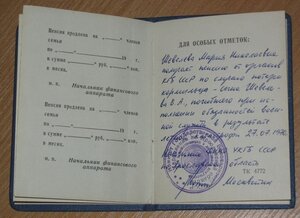 Пенсия продлена на " членов
семьи
по 19 г.
в сумме " руб. коп.
в месяц.
м. п. Начальник финансового
аппарата
Пенсия продлена на " членов
семьи
по 19 г.
в сумме " руб. коп.
в месяц.
м. п. Начальник финансового
аппарата
ДЛЯ ОСОБЫХ ОТМЕТОК:
Шевелева Мария Николаевна
получает пенсию от органов
КГБ СССР по случаю потери
кормильца - сына Шевеле-
ва В.А., погибшего при ис-
полнении обязанностей воен-
ной службы в результате
УКГБ СССР
область
ТК 4772